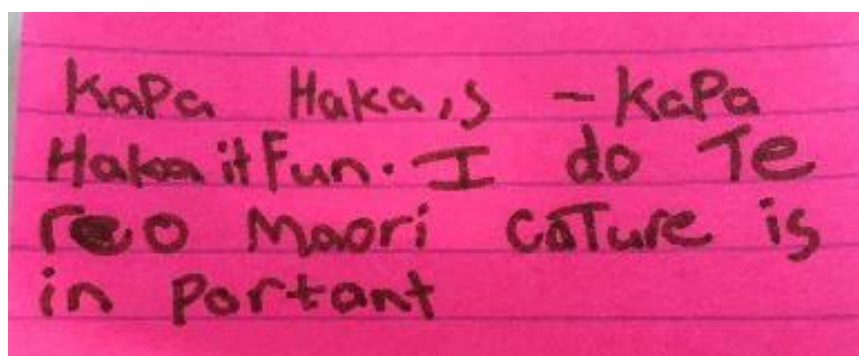 KaPa Haka is - KaPa
Haka it Fun. I do Te
reo Maori caTure is
in portant